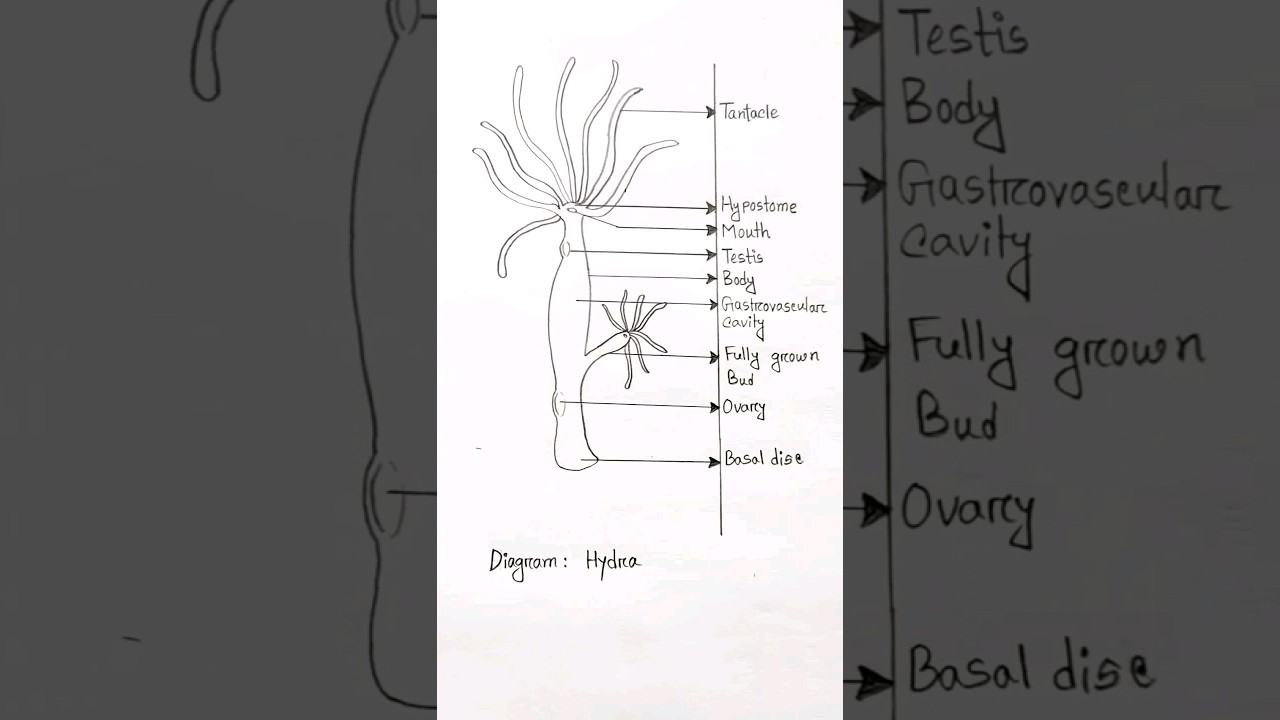 Tantacle
Hypostome
Mouth
Testis
Body
Gastrovascular
cavity
Fully grown
Bud
Ovary
Basal disc
Diagram: Hydra
Testis
Body
Gastrovascular
cavity
Fully grown
Bud
Ovary
Basal disc